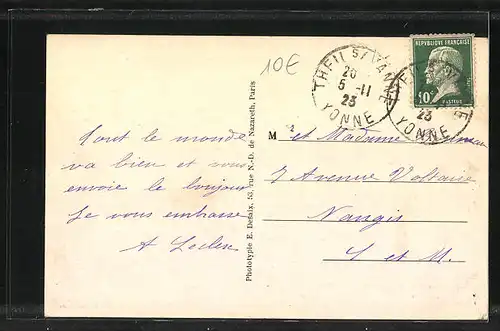 10€
THEIL S/ VANNE
20
5-11
23
YONNE
REPUBLIQUE FRANÇAISE
10c
PASTEUR
23
YONNE
Tout le monde
va bien et vous
envoie le bonjour
Je vous embrasse
A
M r et Madame
7 Avenue Voltaire
Nangis
S et M.
Phototypie E. Defaix, 53, rue N.-D. de Nazareth, Paris